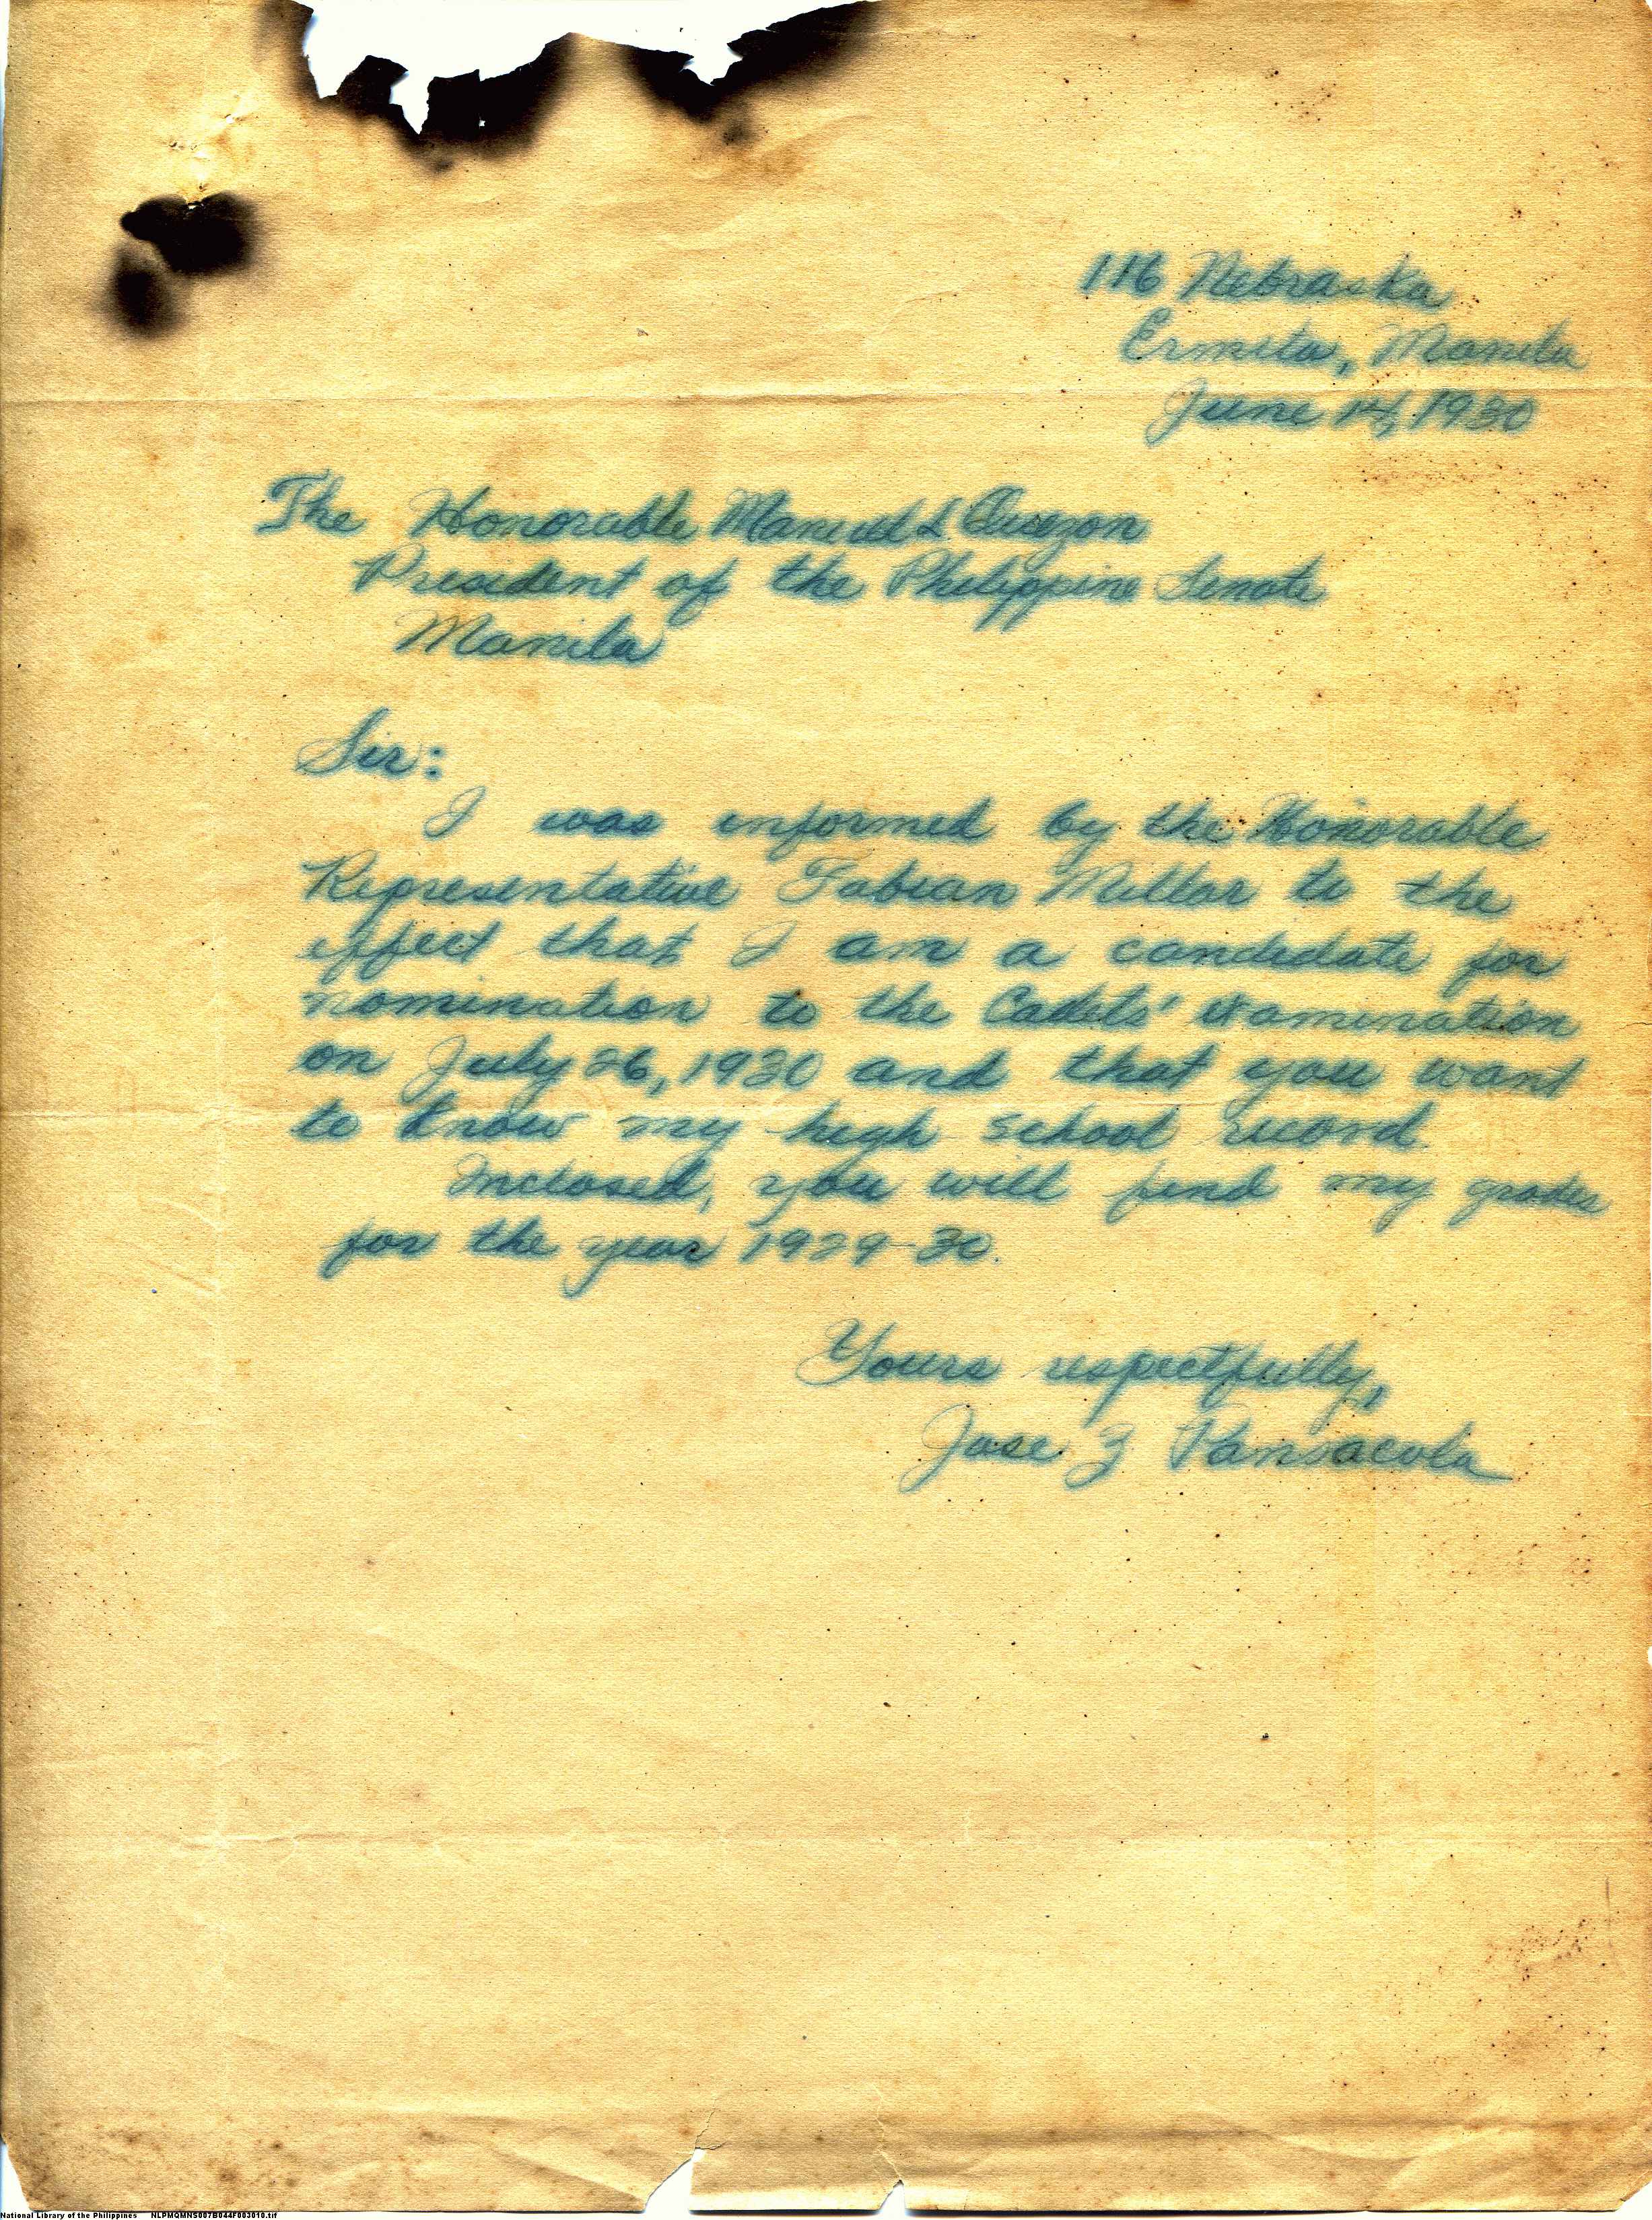 116 Nebraska
Ermita, Manila
June 14, 1930
The Honorable Manuel L. Quezon
President of the Philippine Senate
Manila
Sir:
I was informed by the Honorable
Representative Fabian Millar to the
effect that I am a candidate for
nomination to the Cadets' Examination
on July 26, 1930 and that you want
to know my high school record.
Inclosed, you will find my grades
for the year 1929-30.
Yours respectfully,
Jose Z Pansacola
National Library of the Philippines NLPMQMNS007B044F003010.tif